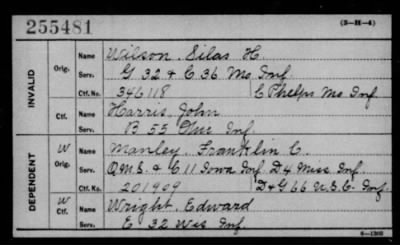 255481 (3-H-4)
INVALID
Orig. Name Wilson, Silas H.
Serv. G 32 & C 36 Mo Inf.
Ctf. No. 346118 C Phelps Mo Inf
Ctf. Name Harris, John
Serv. B 55 Inf.
DEPENDENT
W Orig. Name Manley, Franklin C.
Serv. Q.M.S. & C 11 Iowa Inf. D 4 Miss Inf.
Ctf. No. 201909 D & G 66 U.S.C. Inf.
W Ctf. Name Wright, Edward
Serv. E 32 Wis Inf.